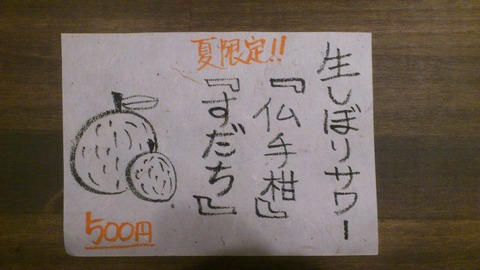 生しぼりサワー
『仏手柑』
『すだち』
夏限定!!
500円